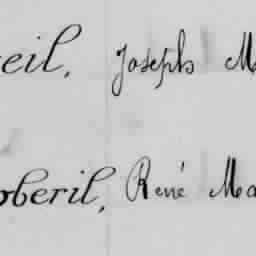 eil, Joseph M
oberil, René Ma